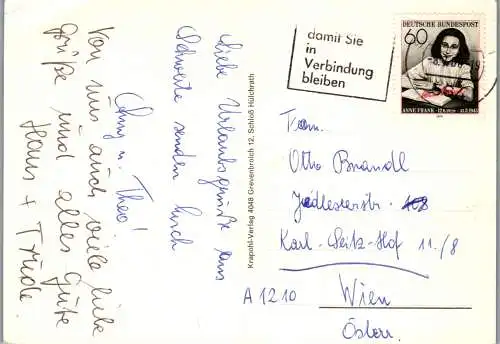 Liebe Urlaubsgrüße aus
Schwerte senden Euch
Anny u. Theo!
Von uns auch viele liebe
Grüße und alles Gute
Hans + Trude.
Krapohl-Verlag 4048 Grevenbroich 12, Schloß Hülchrath
damit Sie
in
Verbindung
bleiben
DEUTSCHE BUNDESPOST
60
ANNE FRANK · 12.6.1929 - 31.3.1945
Fam.
Otto Brandl
Jedleseerstr.
Karl-Seitz-Hof 11./8
A 1210 Wien
Österr.